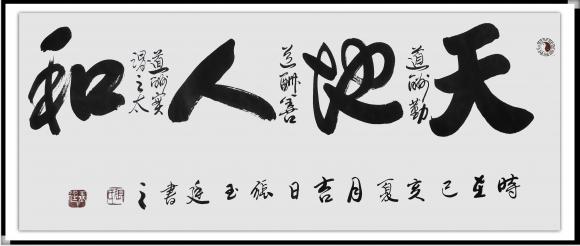 天
道酬勤
地
道酬善
人
道酬實
謂之太
和
時在己亥夏月吉日張玉廷書之